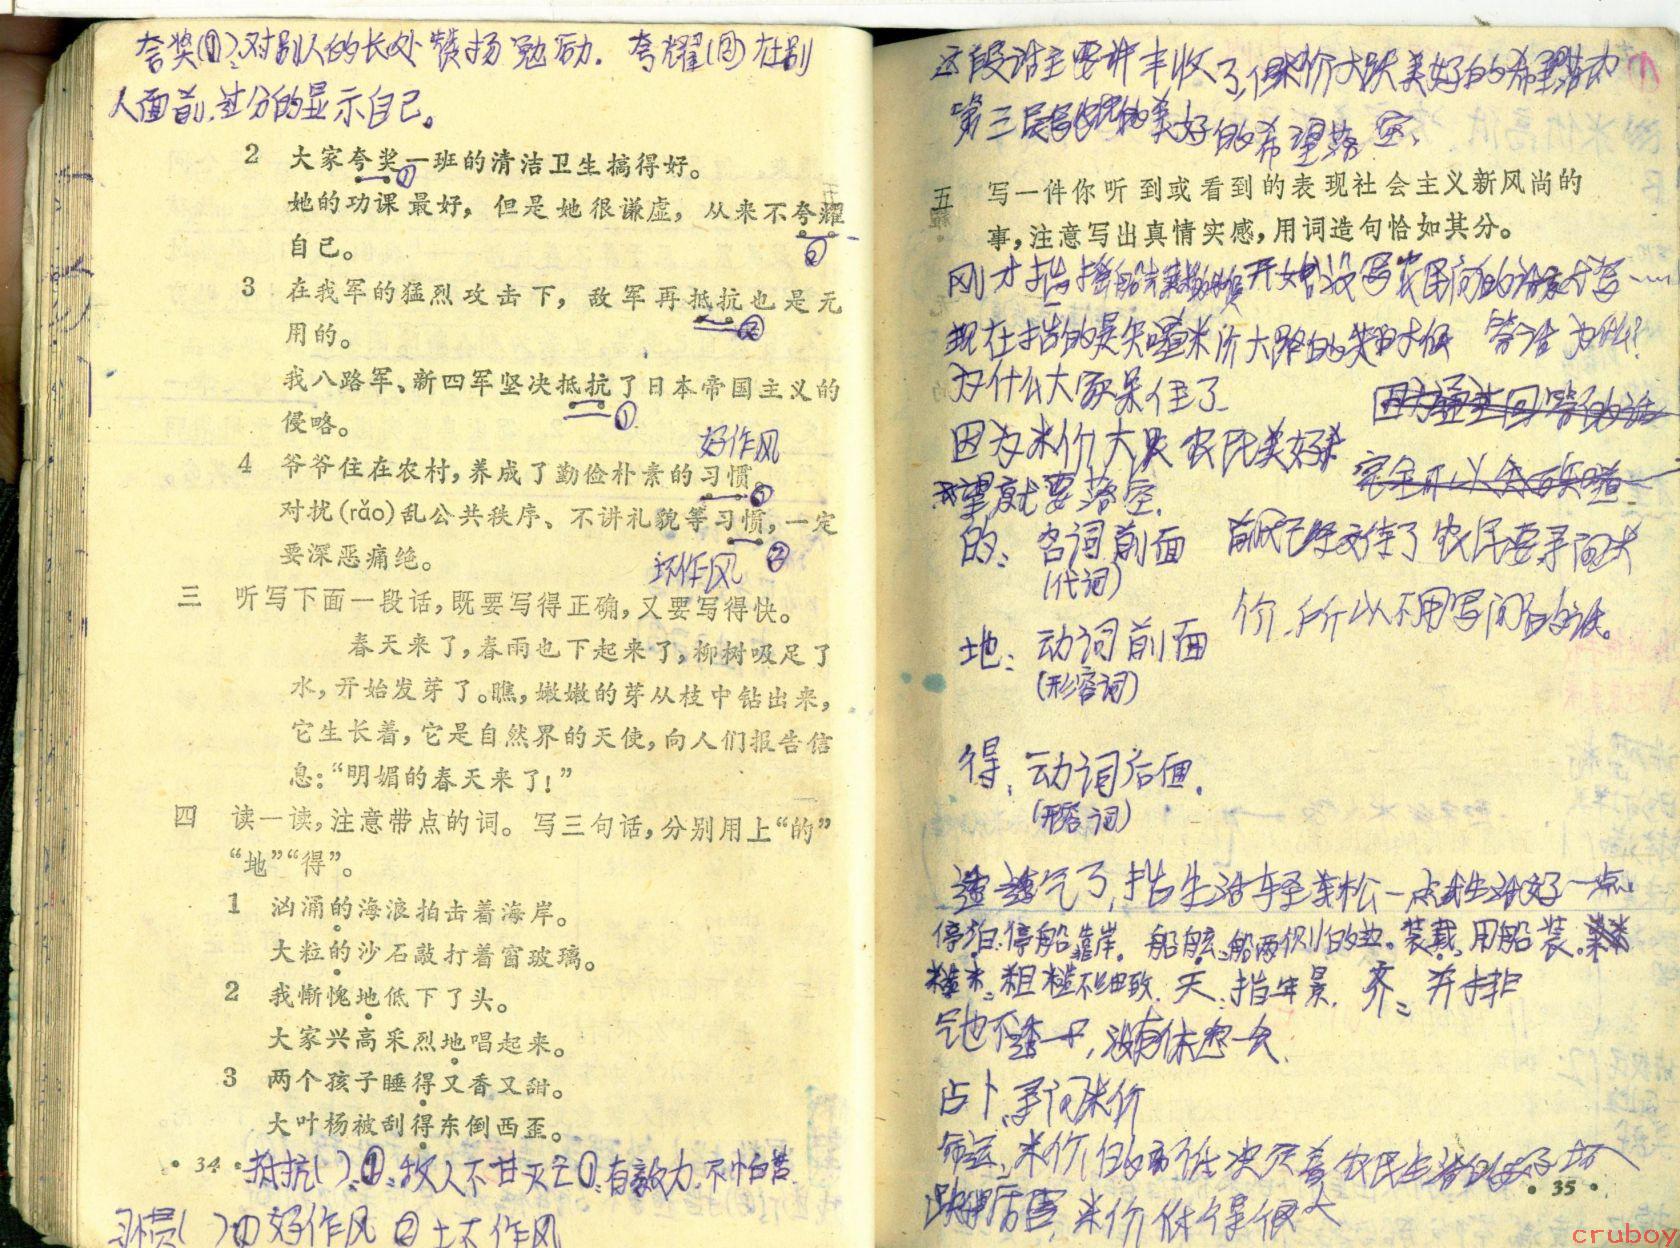 夸奖(①):对别人的长处赞扬勉励. 夸耀(②)在别
人面前,过分的显示自己。
2 大家夸奖一班的清洁卫生搞得好。
①
她的功课最好，但是她很谦虚，从来不夸耀
自己。
②
3 在我军的猛烈攻击下，敌军再抵抗也是无
用的。
②
我八路军、新四军坚决抵抗了日本帝国主义的
侵略。
①
好作风
4 爷爷住在农村，养成了勤俭朴素的习惯。
①
对扰(rǎo)乱公共秩序、不讲礼貌等习惯，一定
要深恶痛绝。
②
坏作风
三 听写下面一段话，既要写得正确，又要写得快。
春天来了，春雨也下起来了，柳树吸足了
水，开始发芽了。瞧，嫩嫩的芽从枝中钻出来，
它生长着，它是自然界的天使，向人们报告信
息：“明媚的春天来了！”
四 读一读，注意带点的词。写三句话，分别用上“的”
“地”“得”。
1 汹涌的海浪拍击着海岸。
大粒的沙石敲打着窗玻璃。
2 我惭愧地低下了头。
大家兴高采烈地唱起来。
3 两个孩子睡得又香又甜。
大叶杨被刮得东倒西歪。
· 34 ·
抵抗( ):②:敌人不甘灭亡①:有效力,不怕苦
习惯( )①好作风 ②坏作风
这段话主要讲丰收了,但米价大跌美好的希望落
第三段 美好的希望落空.
五 写一件你听到或看到的表现社会主义新风尚的
事，注意写出真情实感，用词造句恰如其分。
刚才指 船 开始 没写农民问的话
现在指的是 米价大 的 为什么!
为什么大家呆住了
因为米价大跌 农民美好
希望就要落空.
因为通过回答的话
完全可以
前 已经交待了 农民要寻问米
价,所以不用写问的话。
的: 名词前面
(代词)
地: 动词前面
(形容词)
得: 动词后面.
(形容词)
透透气了,指生活轻松一点或生活好一点.
停泊:停船靠岸. 船舷:船两侧的边. 装载:用船装.
糙米:粗糙不细致. 天:指年景. 齐:并排
气也不透一口,没有休息一会.
占卜:寻问米价
命运:米价的高低决定着农民生活的好坏
跌得厉害:米价低得很大
· 35 ·
cruboy